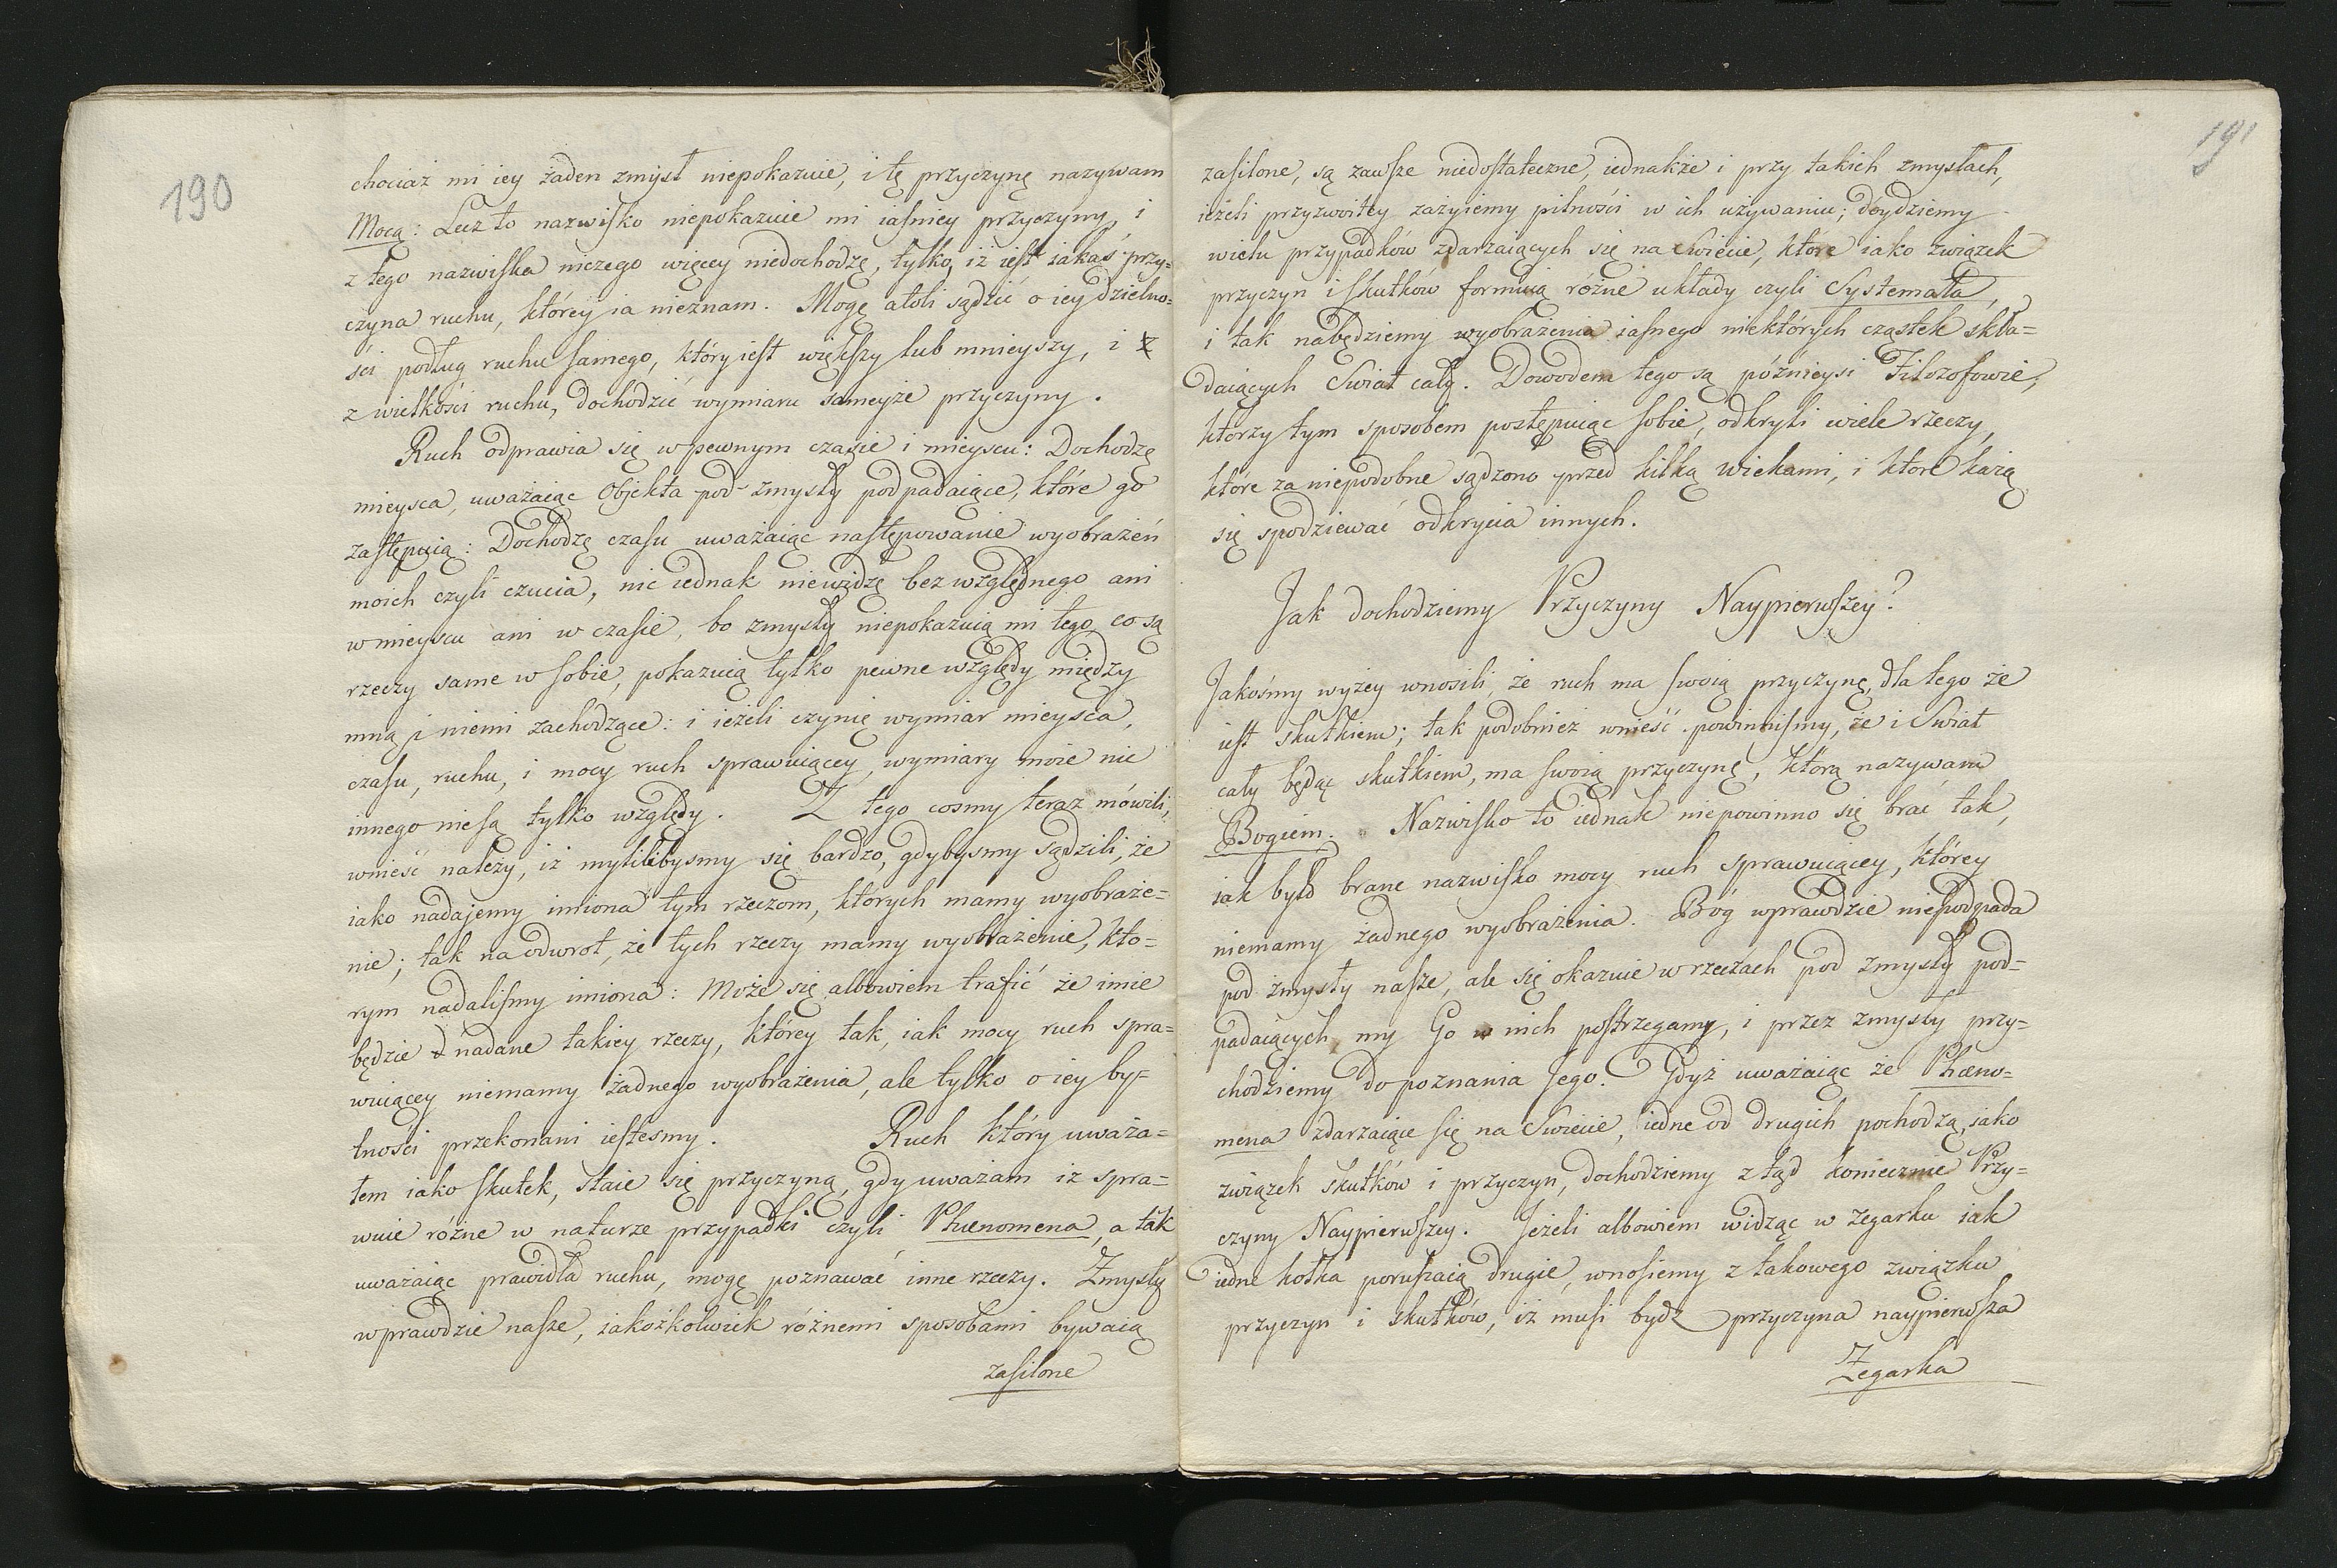 190
chociaż mi iey żaden zmysł niepokazuie, i tę przyczynę nazywam
Mocą: Lecz to nazwisko niepokazuie mi iasniey przyczyny, i
z tego nazwiska niczego więcey niedochodzę, tylko, iż iest iakas przy=
czyna ruchu, którey ia nieznam. Mogę atoli sądzić o iey dzielno=
ści podług ruchu samego, który iest większy lub mnieyszy, i z
z wielkości ruchu, dochodzić wymiaru sameyże przyczyny.
Ruch odprawia się w pewnym czasie i mieyscu: Dochodzę
mieysca, uważaiąc Objekta pod zmysły podpadaiące, które go
zastępuią: Dochodzę czasu uważaiąc następowanie wyobrażeń
moich czyli czucia, nic iednak niewidzę bezwzględnego ani
w mieyscu ani w czasie, bo zmysły niepokazuią mi tego, co są
rzeczy same w sobie, pokazuią tylko pewne względy między
mną i niemi zachodzące: i ieżeli czynię wymiar mieysca,
czasu, ruchu, i mocy ruch sprawuiącey, wymiary moie nic
innego niesą tylko względy. Z tego cosmy teraz mówili,
wnieść należy, iż mylilibysmy się bardzo, gdybysmy sądzili, że
iako nadajemy imiona tym rzeczom, których mamy wyobraże=
nie; tak na odwrot, że tych rzeczy mamy wyobrażenie, kto=
rym nadalismy imiona: Może się albowiem trafić że imie
będzie nadane takiey rzeczy, którey tak, iak mocy ruch spra=
wuiącey niemamy żadnego wyobrażenia, ale tylko o iey by=
tności przekonani iestesmy. Ruch który uważa=
łem iako skutek, staie się przyczyną, gdy uważam iż spra=
wuie różne w naturze przypadki czyli Phænomena, a tak
uważaiąc prawidła ruchu, mogę poznawać inne rzeczy. Zmysły
wprawdzie nasze, iakożkolwiek różnemi sposobami bywaią
zasilone
191
zasilone, są zawsze niedostateczne, iednakże i przy takich zmysłach,
ieżeli przyzwoitey zażyiemy pilności w ich używaniu; doydziemy
wielu przypadków zdarzaiących się na Swiecie, które iako związek
przyczyn i skutków formuią różne układy czyli Systemata,
i tak nabędziemy wyobrażenia iasnego niektórych cząstek skła=
daiących Swiat cały. Dowodem tego są późnieysi Filozofowie,
ktorzy tym sposobem postępuiąc sobie, odkryli wiele rzeczy,
które za niepodobne sądzono przed kilką wiekami, i które każą
się spodziewać odkrycia innych.
Jak dochodziemy Przyczyny Naypierwszey?
Jakośmy wyżey wnosili, że ruch ma swoią przyczynę, dla tego że
iest skutkiem; tak podobnież wnieść powinnismy, że i Swiat
cały będąc skutkiem, ma swoią przyczynę, którą nazywam
Bogiem. Nazwisko to iednak niepowinno się brać tak,
iak było brane nazwisko mocy ruch sprawuiącey, którey
niemamy żadnego wyobrażenia. Bóg wprawdzie niepodpada
pod zmysły nasze, ale się okazuie w rzeczach pod zmysły pod=
padaiących, my Go w nich postrzegamy, i przez zmysły przy=
chodziemy do poznania Jego. Gdyż uważaiąc że Phæno=
mena zdarzaiące się na Swiecie, iedne od drugich pochodzą, iako
związek skutków i przyczyn, dochodziemy ztąd koniecznie Przy=
czyny Naypierwszey. Jeżeli albowiem widząc w zegarku iak
iedne kołka poruszaią drugie, wnosiemy z takowego związku
przyczyn i skutków, iż musi bydź przyczyna naypierwsza
Zegarka